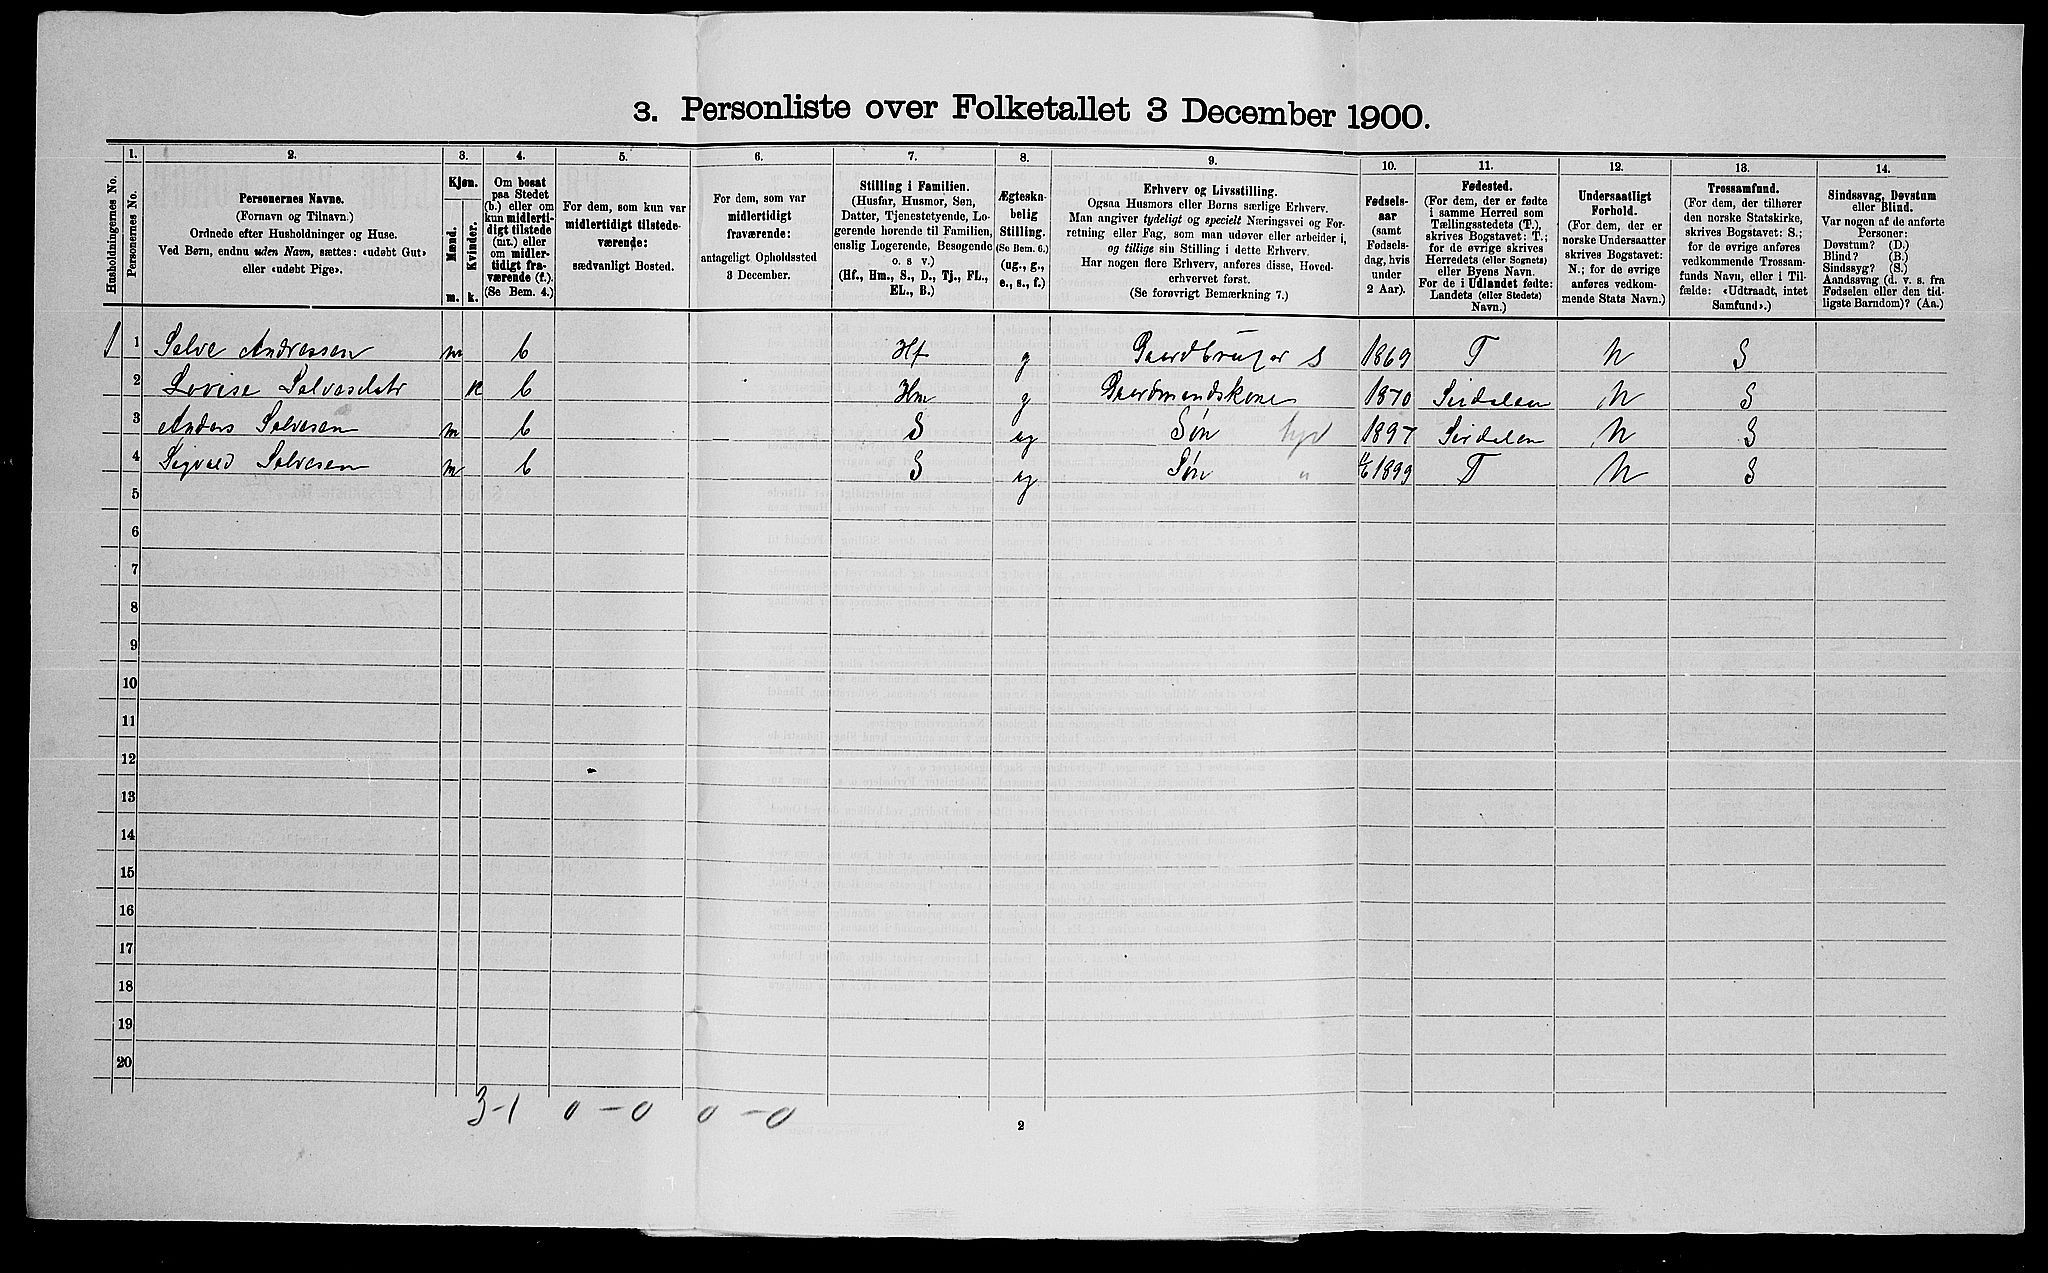 3. Personliste over Folketallet 3 December 1900.
1. 2. 3. 4. 5. 6. 7. 8. 9. 10. 11. 12. 13. 14.
Husholdningernes No.
Personernes No.
Personernes Navne.
(Fornavn og Tilnavn.)
Ordnede efter Husholdninger og Huse.
Ved Børn, endnu uden Navn, sættes: «udøbt Gut»
eller «udøbt Pige».
Kjøn.
Mænd.
Kvinder.
m. k.
Om bosat
paa Stedet
(b.) eller om
kun midlerti-
digt tilstede
(mt.) eller
om midler-
tidigt fra-
værende (f.).
(Se Bem. 4.)
For dem, som kun var
midlertidigt tilstede-
værende:
sædvanligt Bosted.
For dem, som var
midlertidigt
fraværende:
antageligt Opholdssted
3 December.
Stilling i Familien.
(Husfar, Husmor, Søn,
Datter, Tjenestetyende, Lo-
gerende hørende til Familien,
enslig Logerende, Besøgende
o. s v.)
(Hf., Hm., S., D., Tj., FL.,
EL., B.)
Ægteska-
belig
Stilling.
(Se Bem. 6.)
(ug., g.,
e., s., f.)
Erhverv og Livsstilling.
Ogsaa Husmors eller Børns særlige Erhverv.
Man angiver tydeligt og specielt Næringsvei og For-
retning eller Fag, som man udøver eller arbeider i,
og tillige sin Stilling i dette Erhverv.
Har nogen flere Erhverv, anføres disse, Hoved-
erhvervet først.
(Se forøvrigt Bemærkning 7.)
Fødsels-
aar
(samt
Fødsels-
dag, hvis
under
2 Aar).
Fødested.
(For dem, der er fødte
i samme Herred som
Tællingsstedets (T.),
skrives Bogstavet: T.;
for de øvrige skrives
Herredets (eller Sognets)
eller Byens Navn.
For de i Udlandet fødte:
Landets (eller Stedets)
Navn.)
Undersaatligt
Forhold.
(For dem, der er
norske Undersaatter
skrives Bogstavet:
N.; for de øvrige
anføres vedkom-
mende Stats Navn.)
Trossamfund.
(For dem, der tilhører
den norske Statskirke,
skrives Bogstavet: S.;
for de øvrige anføres
vedkommende Trossam-
funds Navn, eller i Til-
fælde: «Udtraadt, intet
Samfund».)
Sindssvag, Døvstum
eller Blind.
Var nogen af de anførte
Personer:
Døvstum? (D.)
Blind? (B.)
Sindssyg? (S.)
Aandssvag (d. v. s. fra
Fødselen eller den tid-
ligste Barndom)? (Aa.)
1 1 Salve Andreassen m b Hf g Gaardbruger S 1869 T N S
2 Lovise Salvesdatr k b Hm g Gaardmandskone 1870 Sirdalen N S
3 Anders Salvesen m b S ug Søn 1897 Sirdalen N S
4 Sigvald Salvesen m b S ug Søn " 1899 T N S
5
6
7
8
9
10
11
12
13
14
15
16
17
18
19
20
3-1 0-0 0-0
2